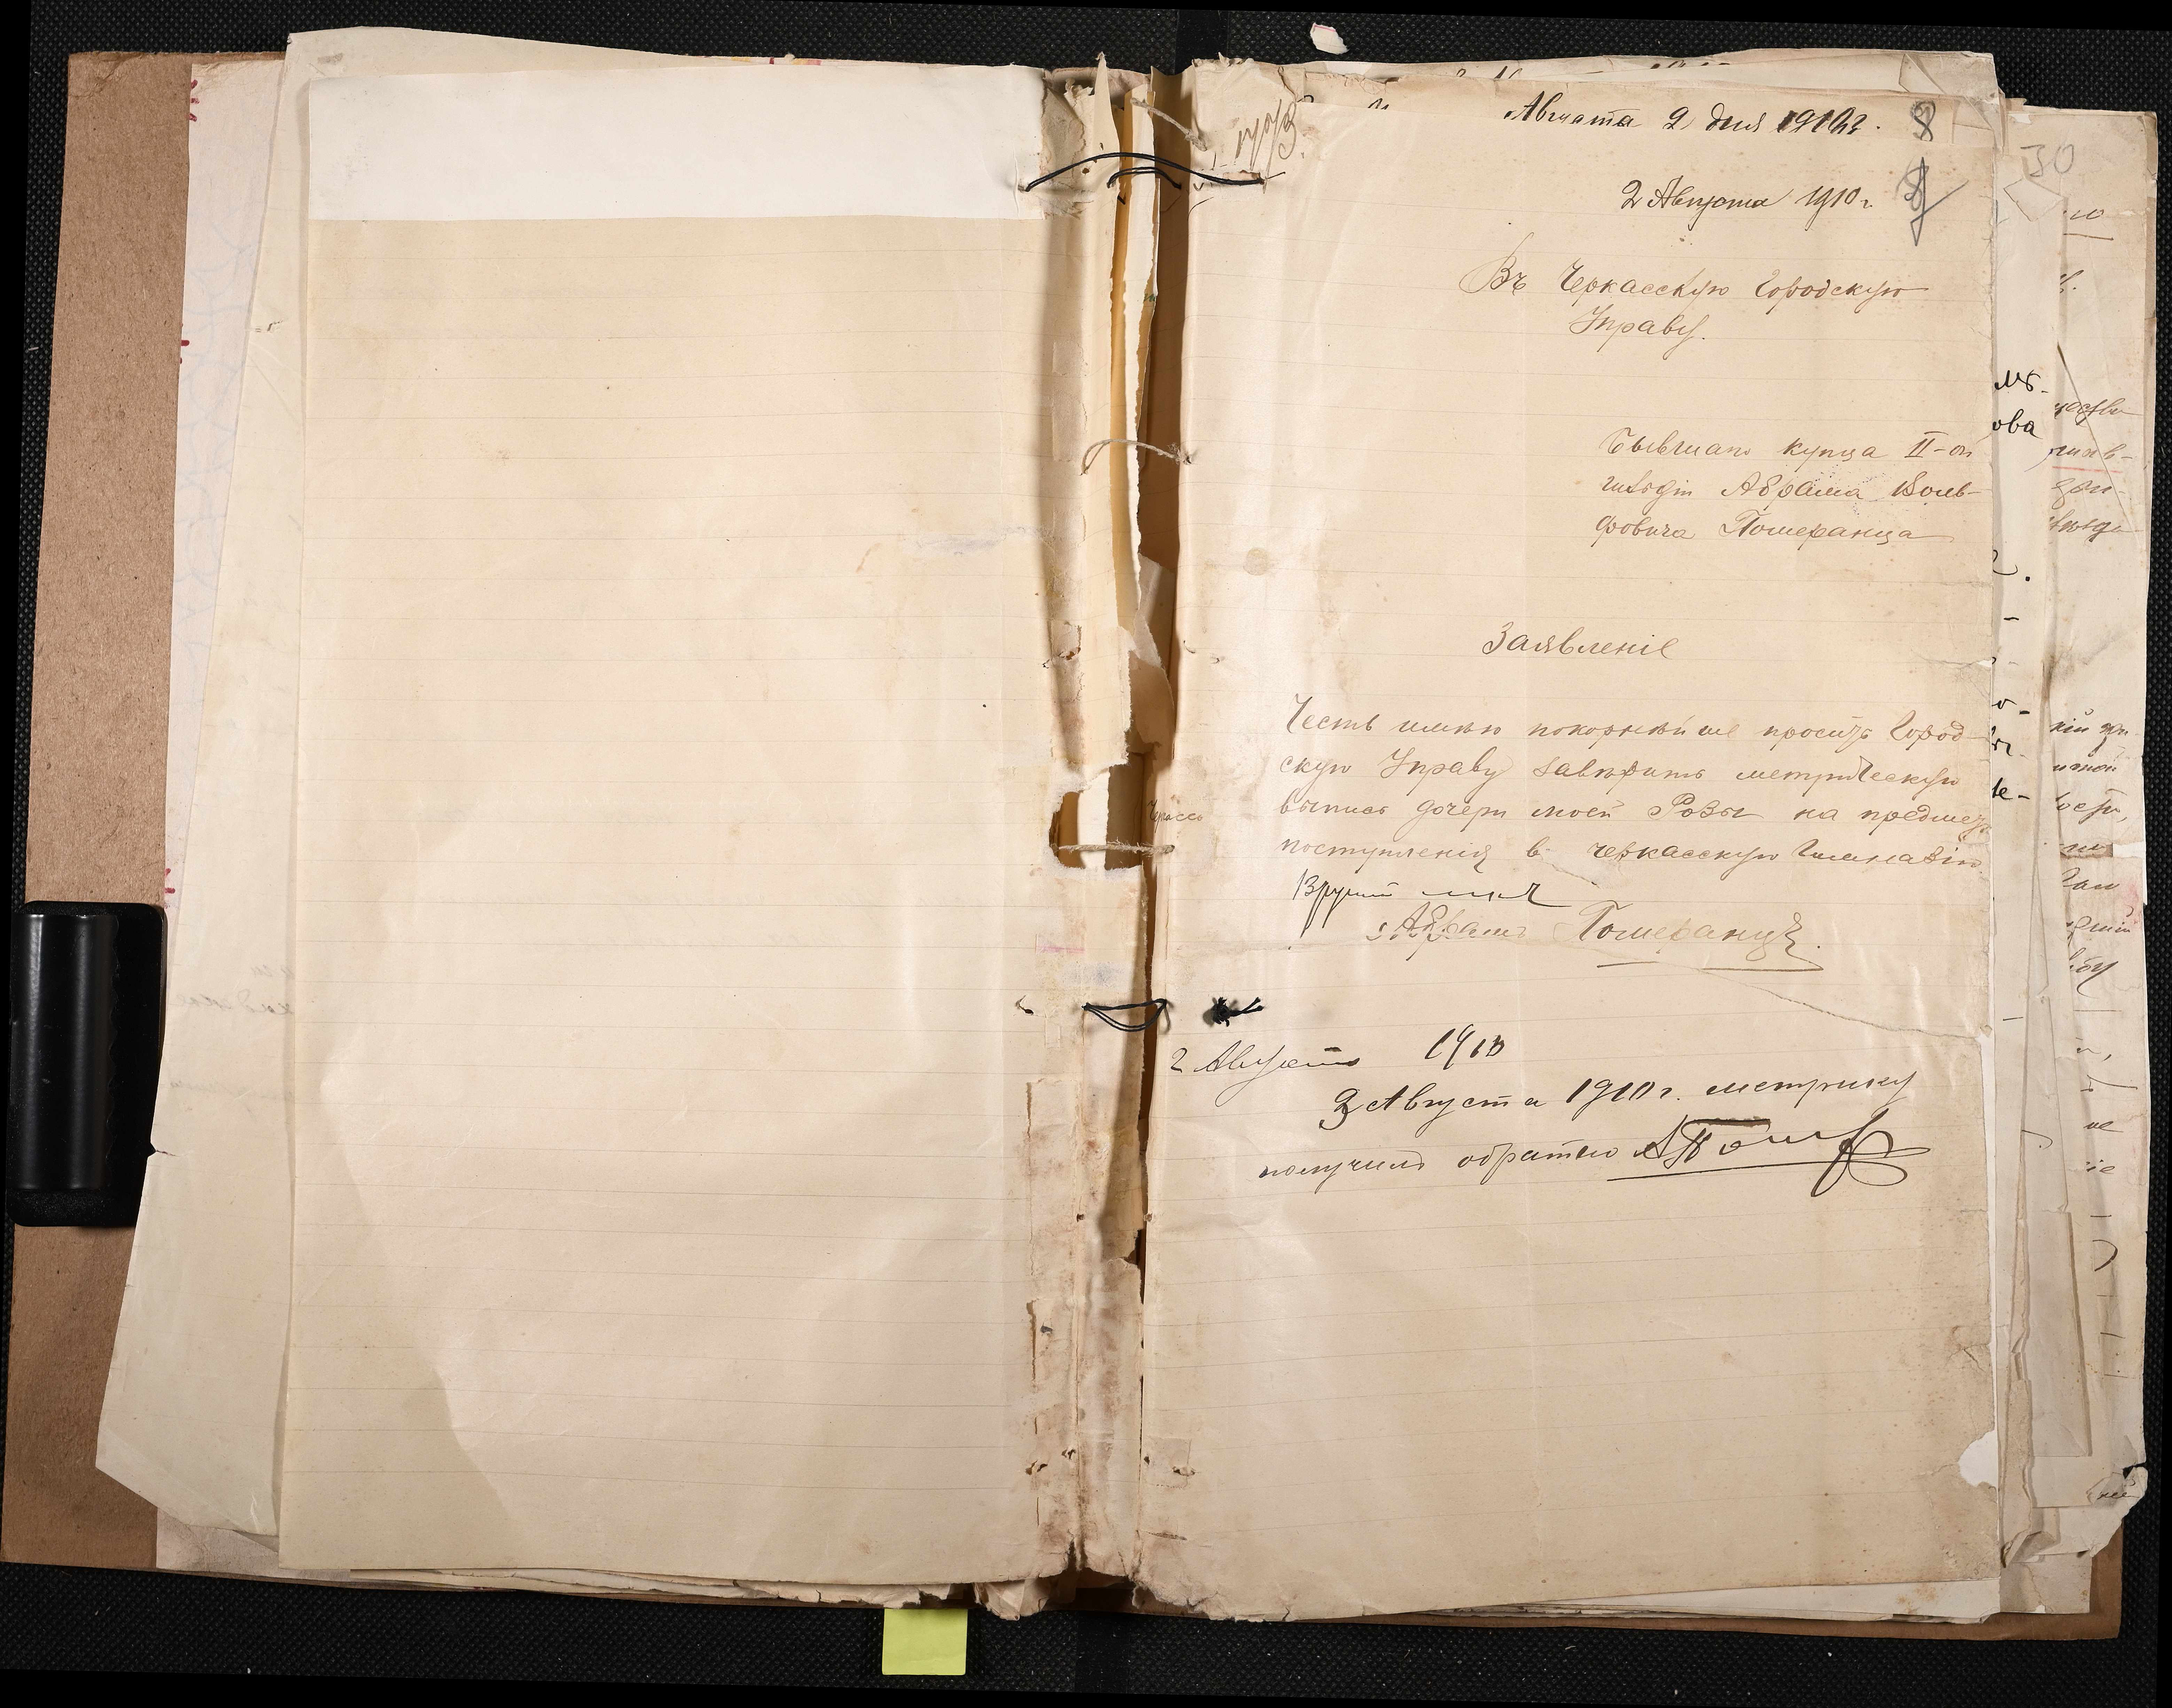 Августа 2 дня 1910 г.
2 Августа 1910 г.
Въ Черкасскую Городскую
Управу.
Бывшаго купца II-ой
гильдіи Абрама Воль-
фовича Померанца
Заявленіе
Честь имѣю покорнѣйше просить Город
скую Управу завѣрить метрическую
выпись дочери моей Розы на предметъ
поступленія в черкасскую гимназію.
Абрамъ Померанцъ.
2 Августа 1910
2 Августа 1910 г. метрику
получилъ обратно
30